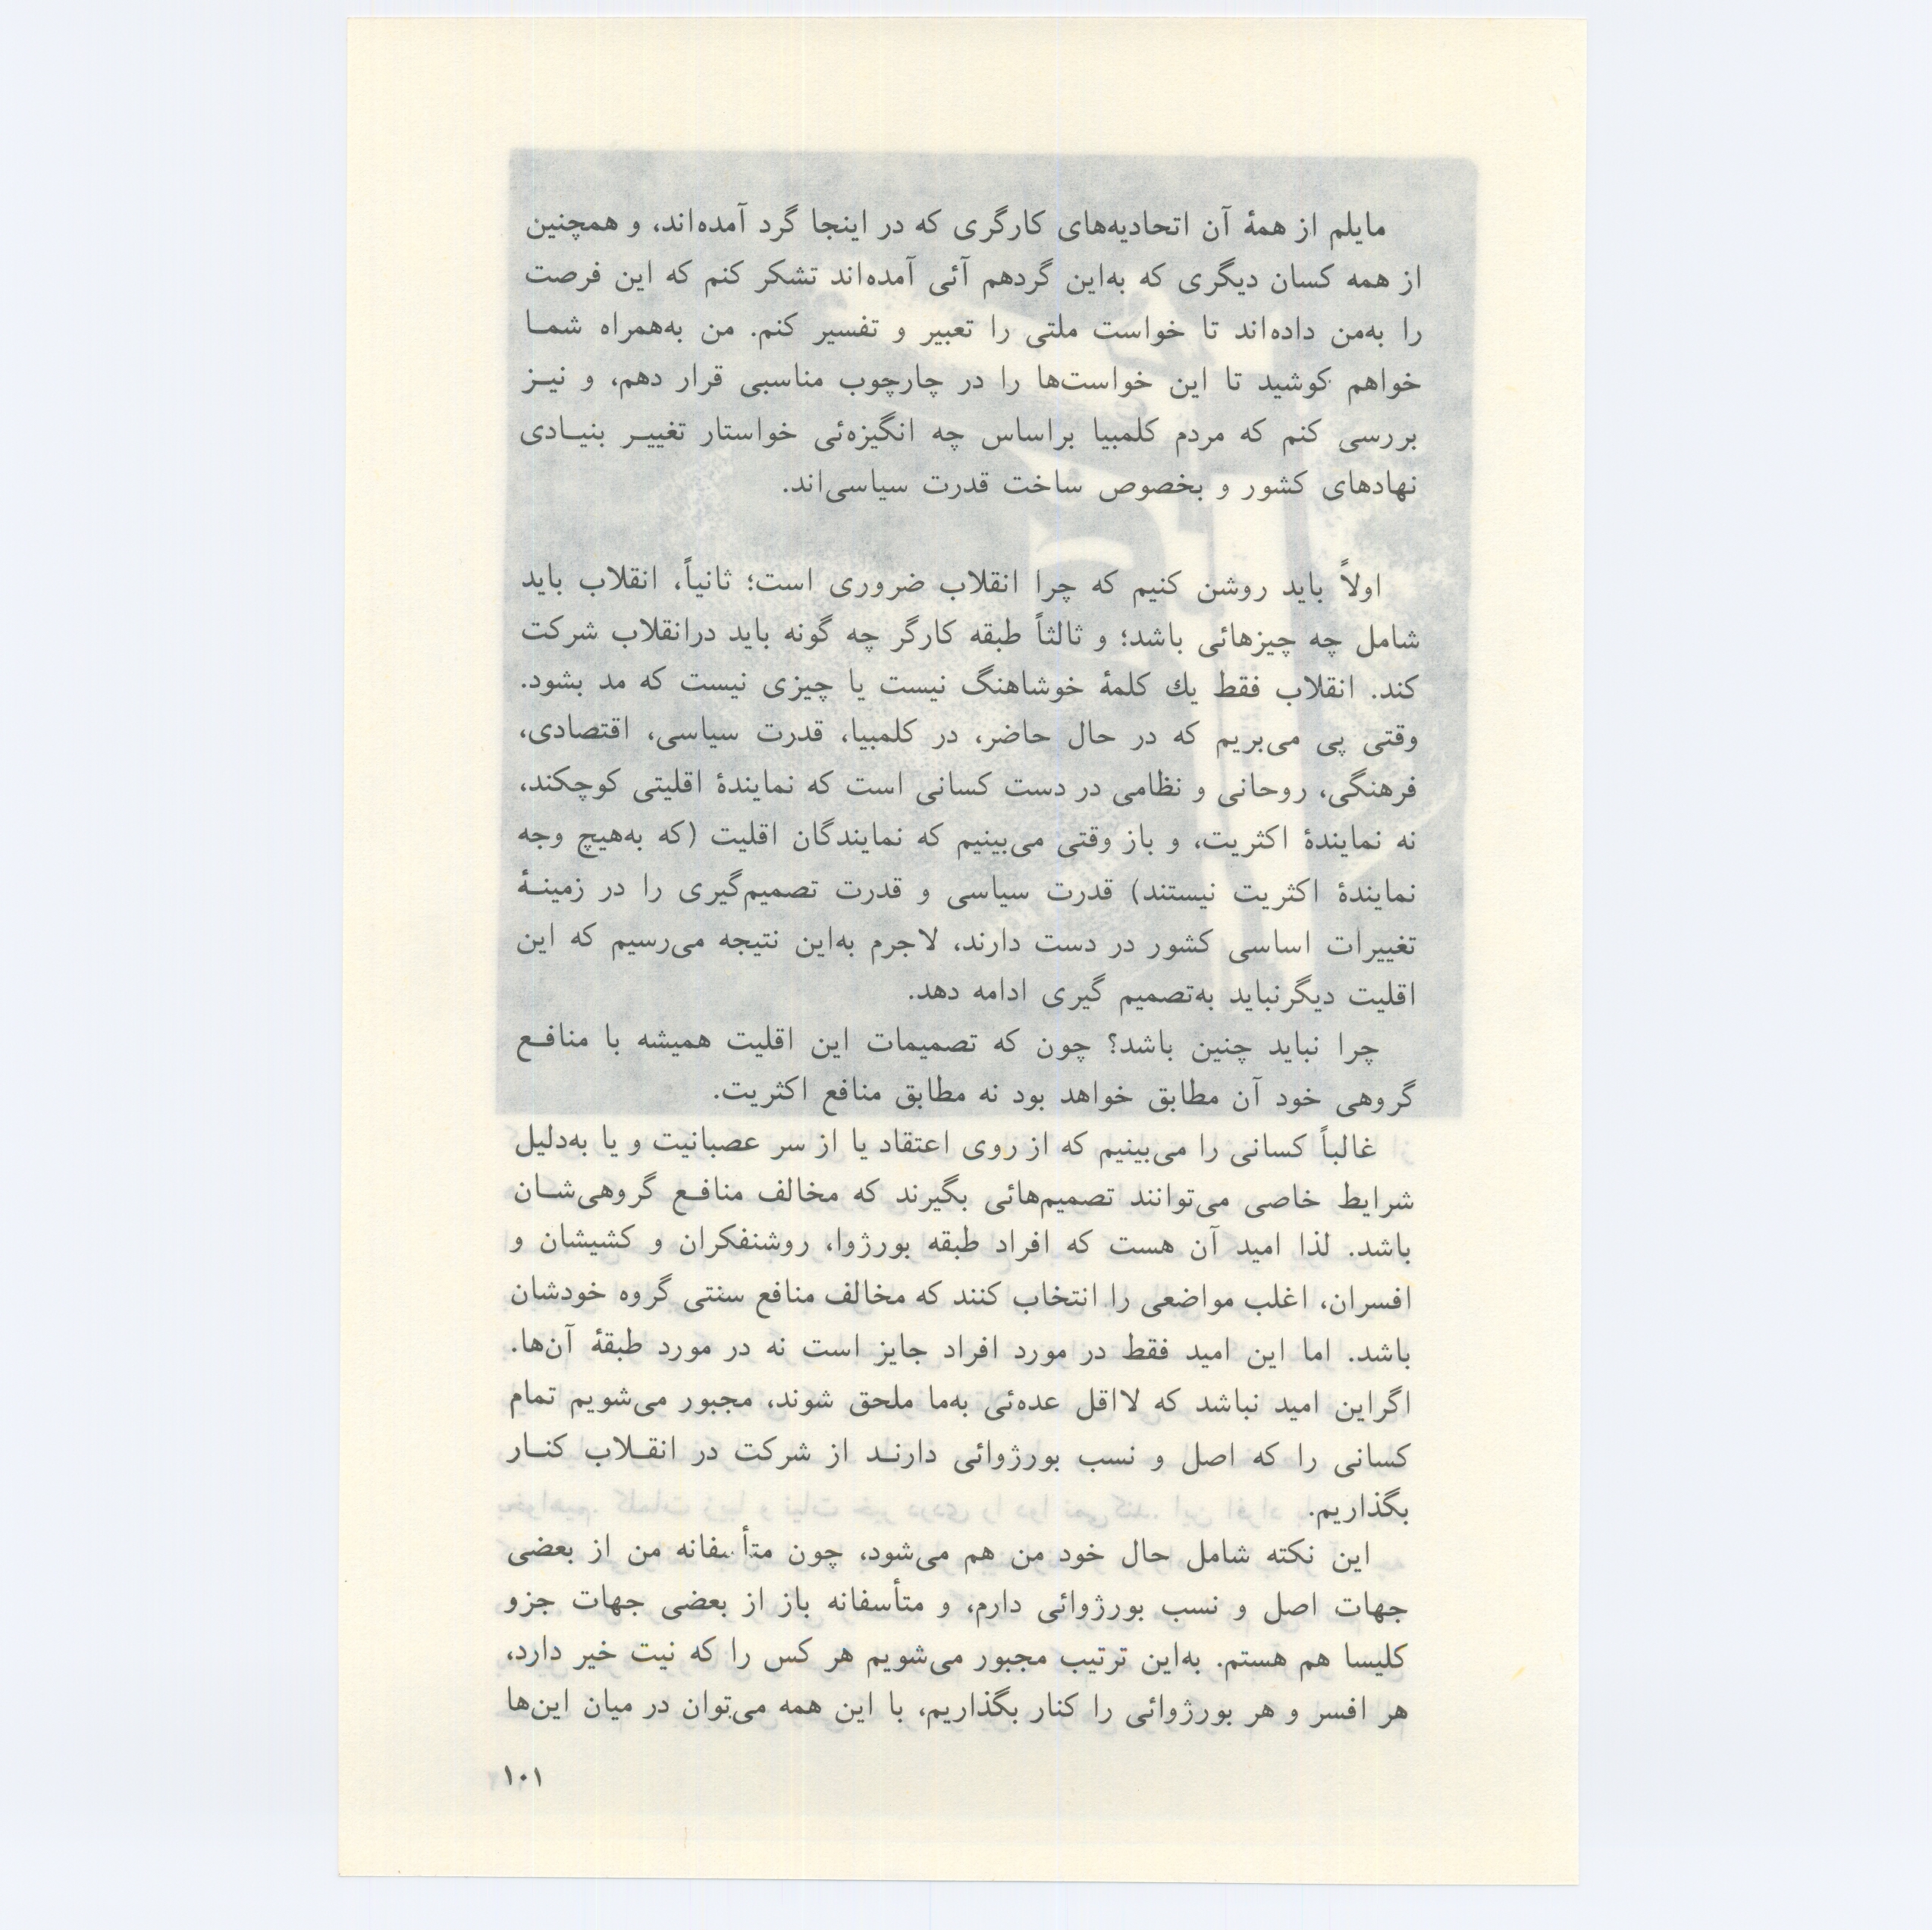 مایلم از همهٔ آن اتحادیه‌های کارگری که در اینجا گرد آمده‌اند، و همچنین
از همه کسان دیگری که به‌این گردهم آئی آمده‌اند تشکر کنم که این فرصت
را به‌من داده‌اند تا خواست ملتی را تعبیر و تفسیر کنم. من به‌همراه شمـا
خواهم کوشید تا این خواست‌ها را در چارچوب مناسبی قرار دهم، و نیـز
بررسی کنم که مردم کلمبیا براساس چه انگیزه‌ئی خواستار تغییـر بنیـادی
نهادهای کشور و بخصوص ساخت قدرت سیاسی‌اند.
اولاً باید روشن کنیم که چرا انقلاب ضروری است؛ ثانیاً، انقلاب باید
شامل چه چیزهائی باشد؛ و ثالثاً طبقه کارگر چه گونه باید درانقلاب شرکت
کند. انقلاب فقط یك کلمهٔ خوشاهنگ نیست یا چیزی نیست که مد بشود.
وقتی پی می‌بریم که در حال حاضر، در کلمبیا، قدرت سیاسی، اقتصادی،
فرهنگی، روحانی و نظامی در دست کسانی است که نمایندهٔ اقلیتی کوچکند،
نه نمایندهٔ اکثریت، و باز وقتی می‌بینیم که نمایندگان اقلیت (که به‌هیچ وجه
نمایندهٔ اکثریت نیستند) قدرت سیاسی و قدرت تصمیم‌گیری را در زمینـهٔ
تغییرات اساسی کشور در دست دارند، لاجرم به‌این نتیجه می‌رسیم که این
اقلیت دیگرنباید به‌تصمیم گیری ادامه دهد.
چرا نباید چنین باشد؟ چون که تصمیمات این اقلیت همیشه با منافـع
گروهی خود آن مطابق خواهد بود نه مطابق منافع اکثریت.
غالباً کسانی را می‌بینیم که از روی اعتقاد یا از سر عصبانیت و یا به‌دلیل
شرایط خاصی می‌توانند تصمیم‌هائی بگیرند که مخالف منافـع گروهی‌شـان
باشد. لذا امید آن هست که افراد طبقه بورژوا، روشنفکران و کشیشان و
افسران، اغلب مواضعی را انتخاب کنند که مخالف منافع سنتی گروه خودشان
باشد. اما این امید فقط در مورد افراد جایز است نه در مورد طبقهٔ آن‌ها.
اگراین امید نباشد که لااقل عده‌ئی به‌ما ملحق شوند، مجبور می‌شویم تمام
کسانی را که اصل و نسب بورژوائی دارنـد از شرکت در انقـلاب کنـار
بگذاریم.
این نکته شامل حال خود من هم می‌شود، چون متأسفانه من از بعضی
جهات اصل و نسب بورژوائی دارم، و متأسفانه باز از بعضی جهات جزو
کلیسا هم هستم. به‌این ترتیب مجبور می‌شویم هر کس را که نیت خیر دارد،
هر افسر و هر بورژوائی را کنار بگذاریم، با این همه می‌توان در میان این‌ها
۱۰۱